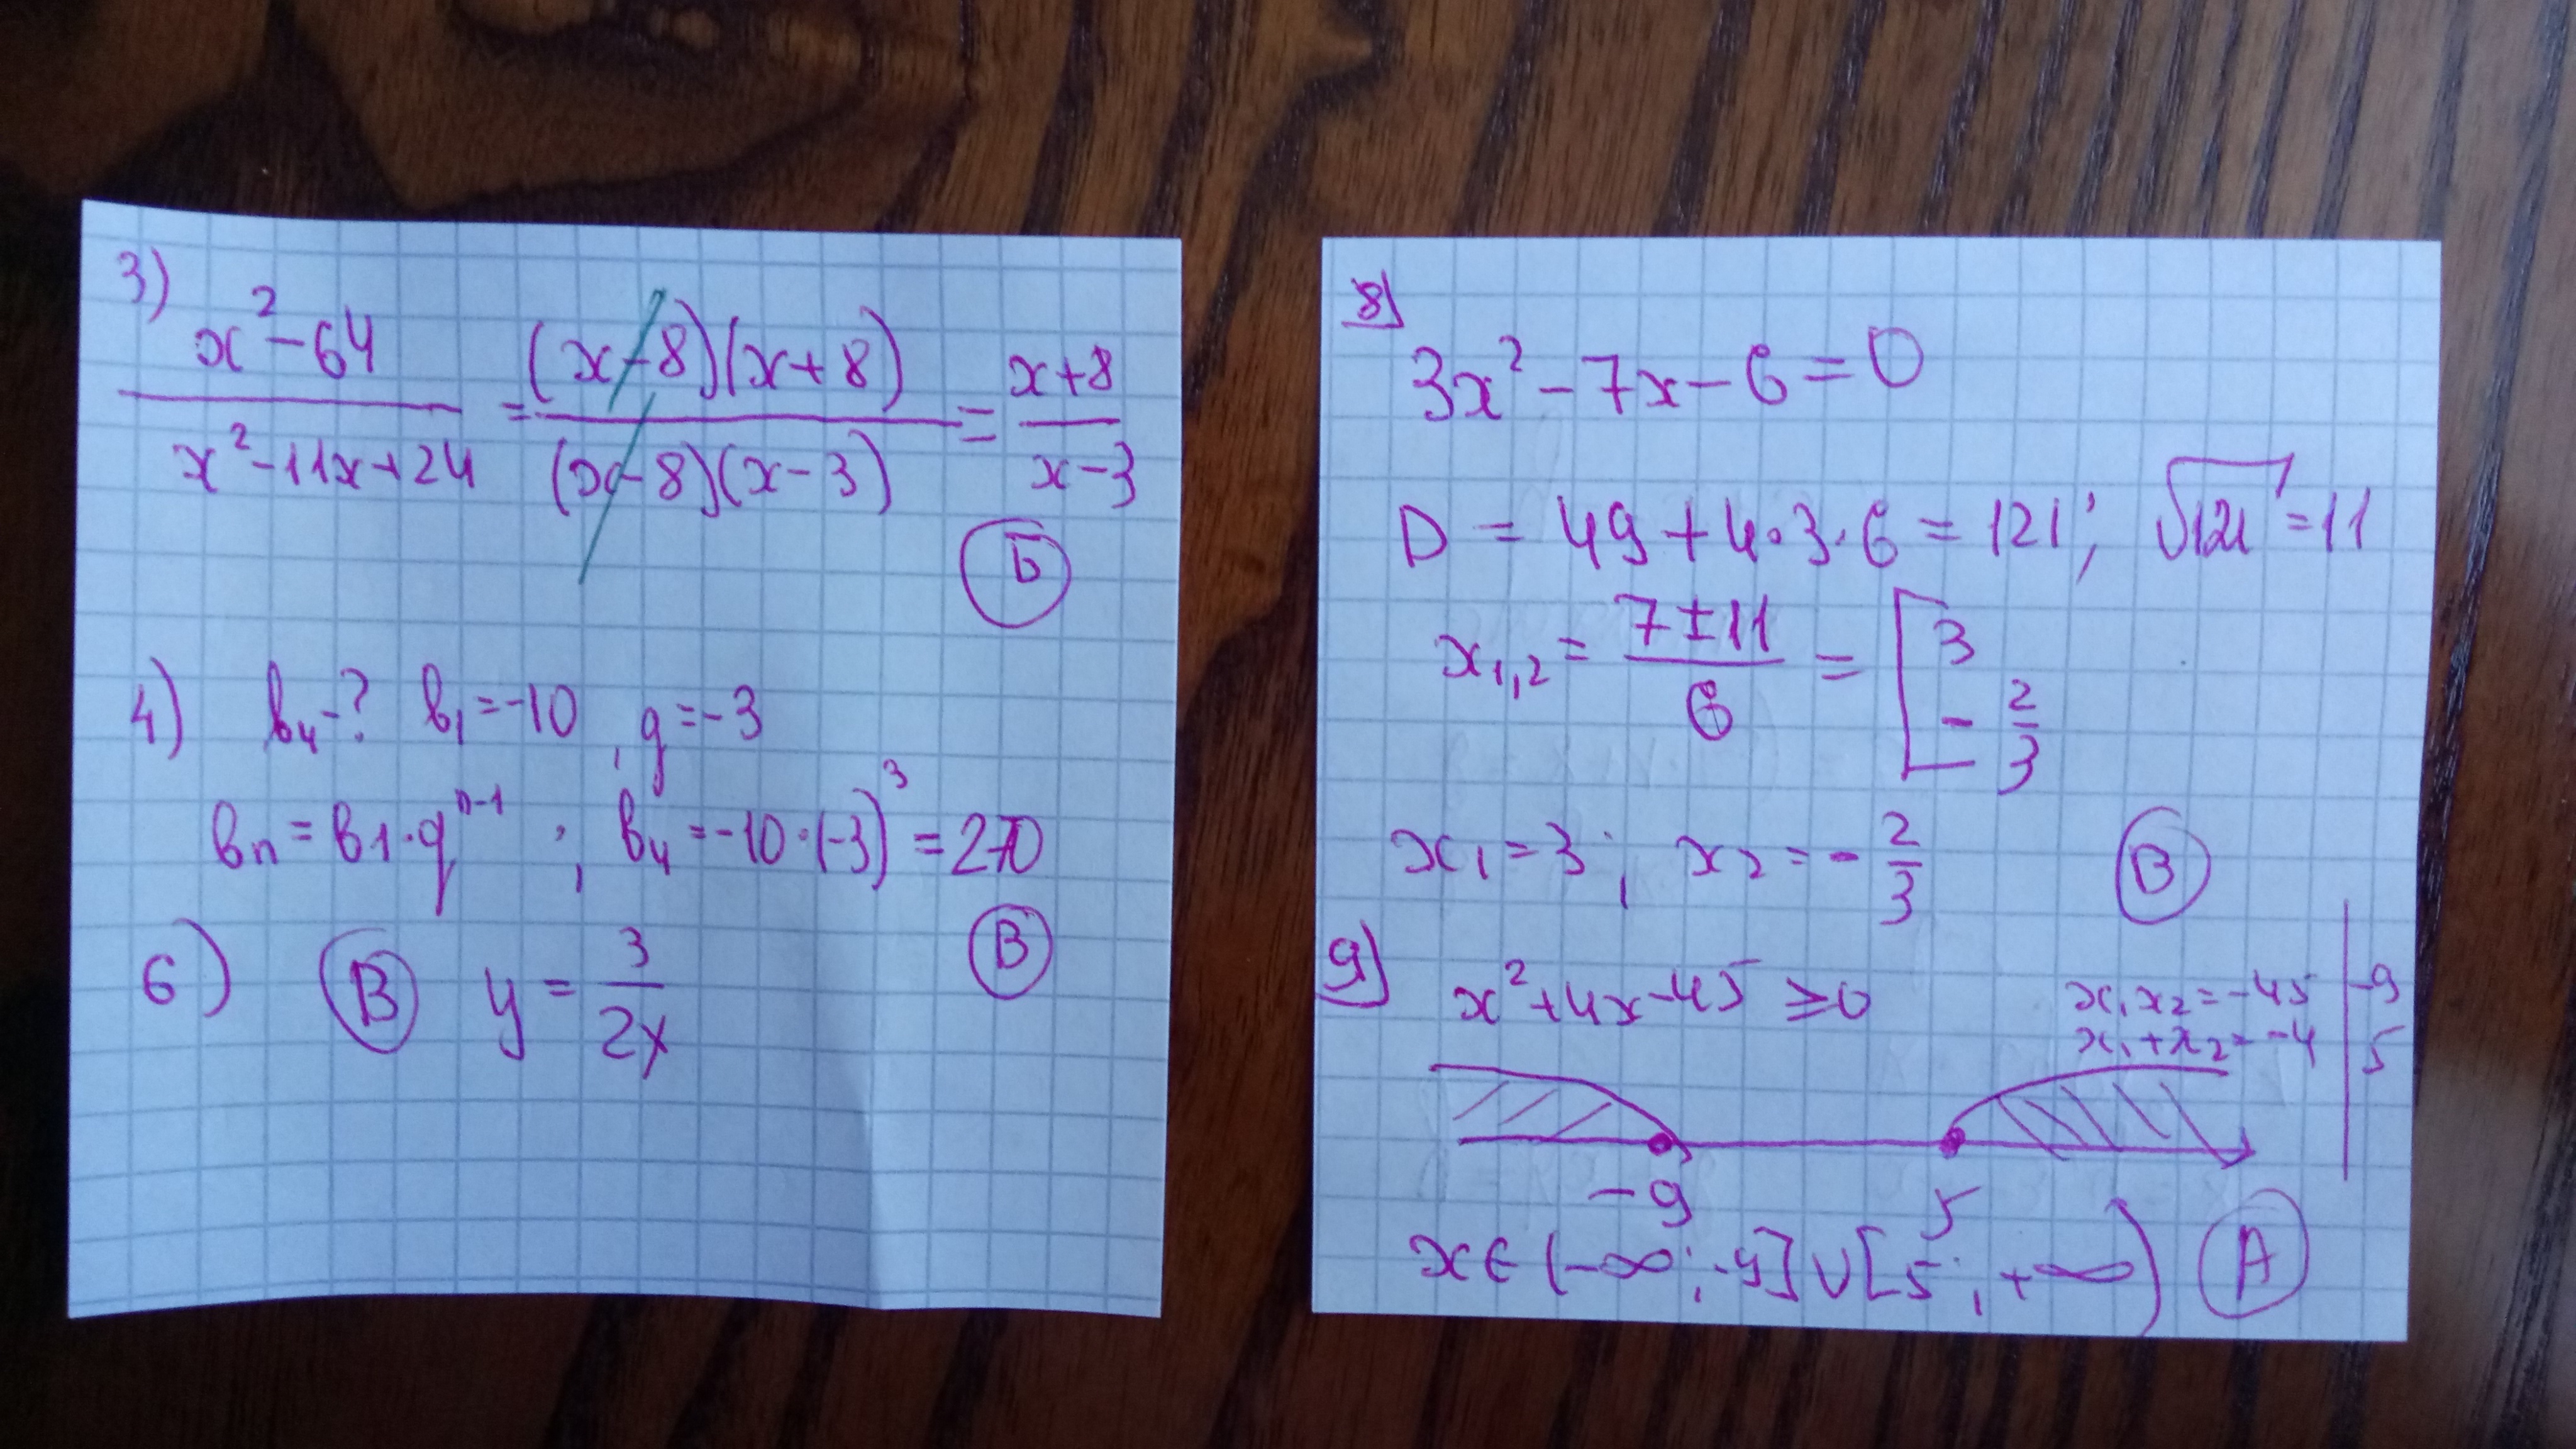 3)
x²-64 / x²-11x+24 = (x-8)(x+8) / (x-8)(x-3) = x+8 / x-3
Б
4) b₄-? b₁=-10, q=-3
bₙ=b₁·qⁿ⁻¹; b₄=-10·(-3)³=270
В
6) В y=3/2x
8)
3x²-7x-6=0
D=49+4·3·6=121; √121=11
x₁,₂=7±11/6=[3 -2/3
x₁=3; x₂=-2/3 В
9)
x²+4x-45≥0 x₁x₂=-45 | -9
x₁+x₂=-4 | 5
-9 5
x∈(-∞;-9]∪[5;+∞) А